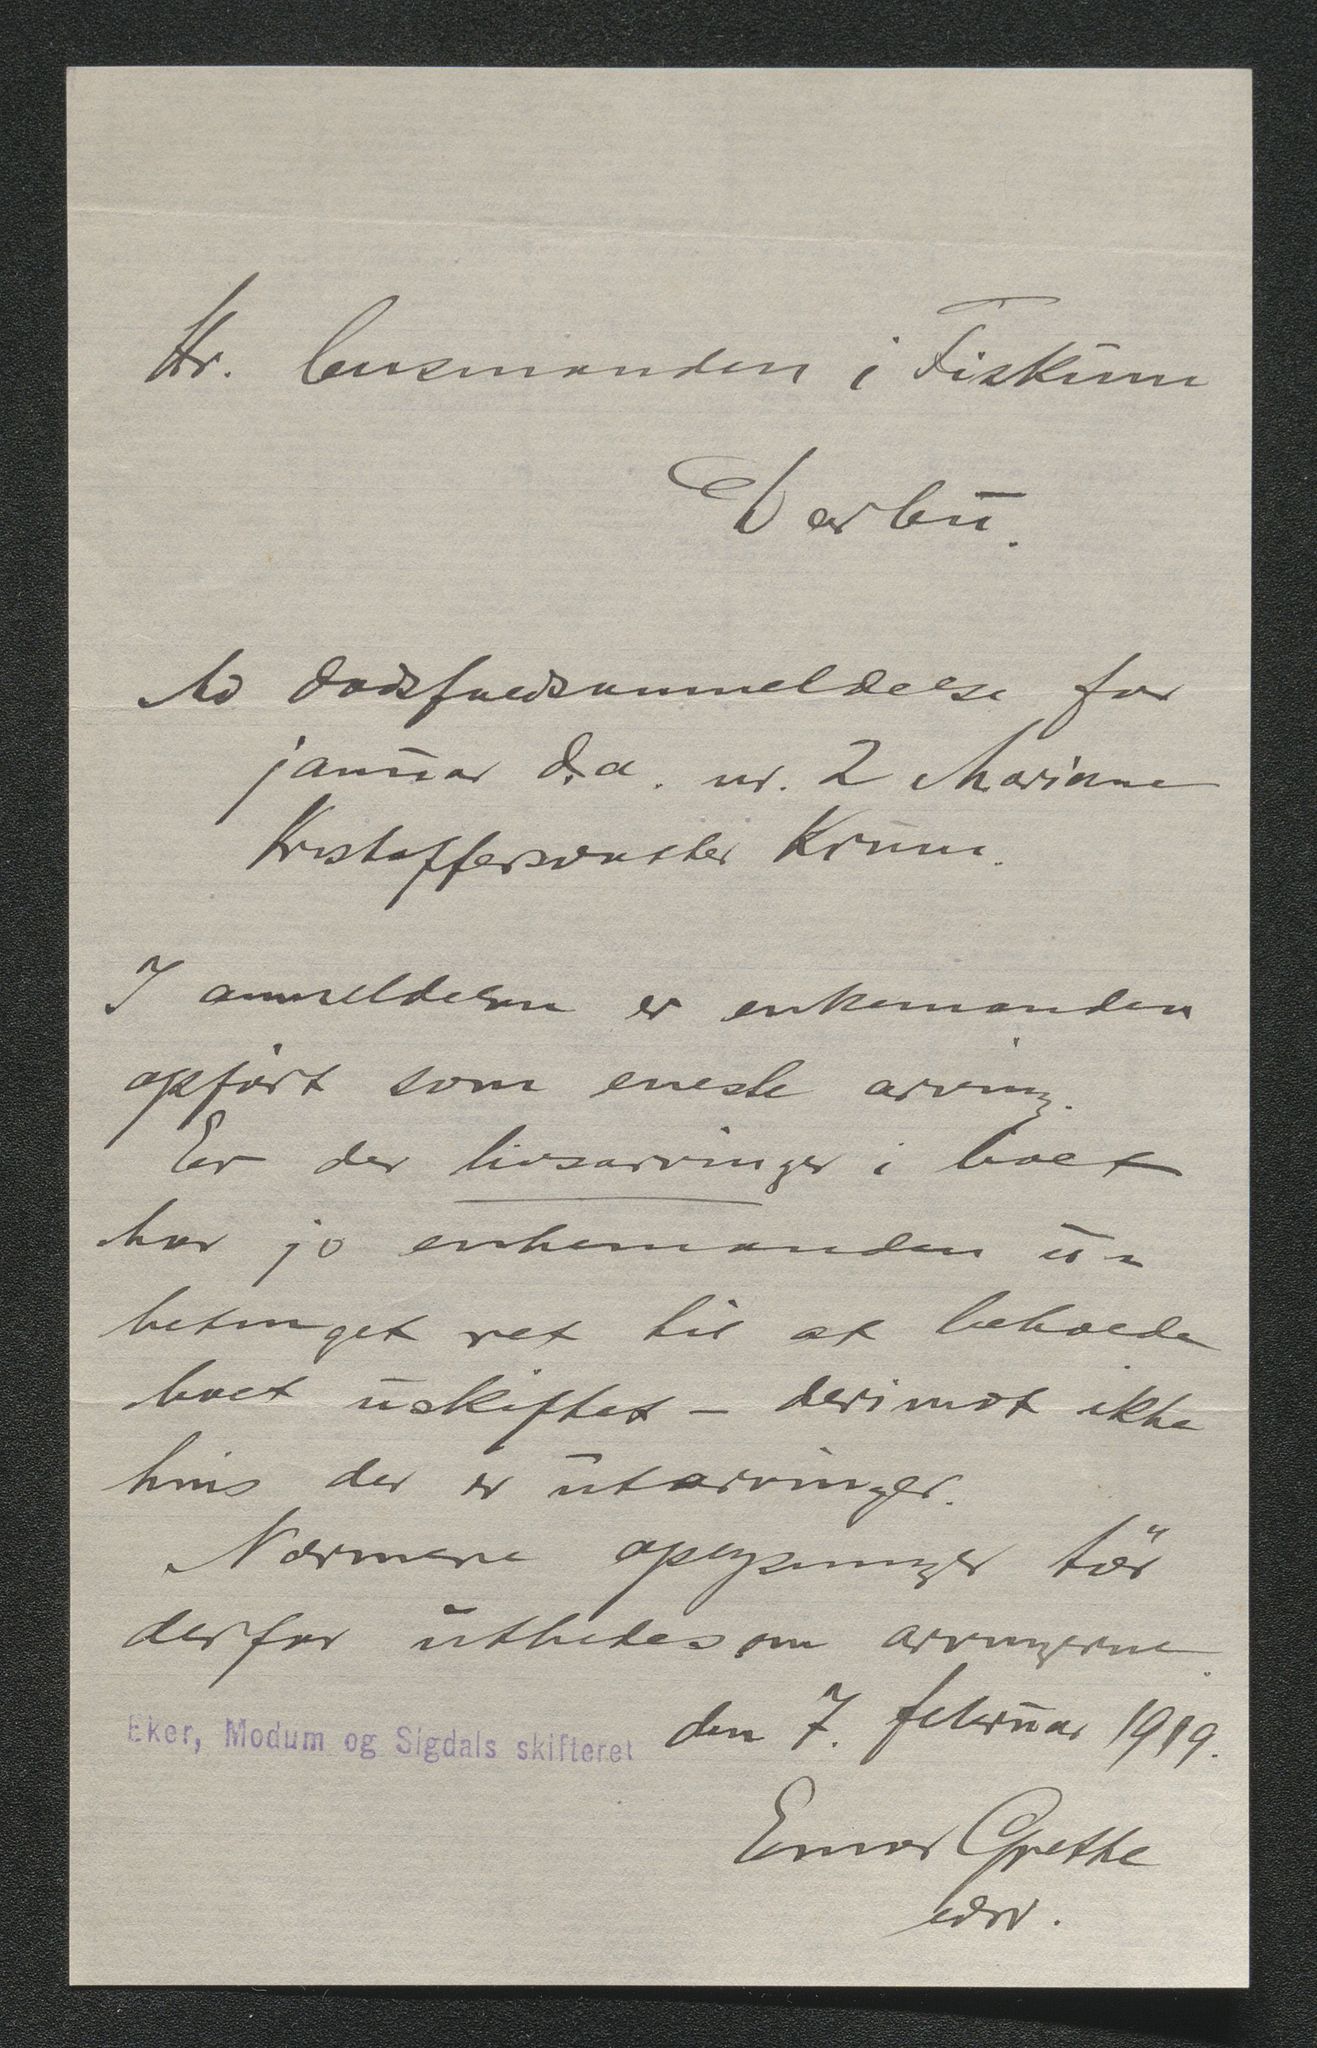 Hr. lensmanden i Fiskum
Darbu.
Ad dødsfaldsanmeldelse for
januar d.a. nr. 2 Marianne
Kristoffersdatter Krum.
I anmeldelsen er enkemanden
opført som eneste arving.
Er der livsarvinger i boet
har jo enkemanden u-
betinget ret til at beholde
boet uskiftet – derimot ikke
hvis der er utarvinger.
Nærmere oplysninger bør
derfor utbedes om arvingerne.
Eker, Modum og Sigdals skifteret den 7. februar 1919.
Einar Grethe